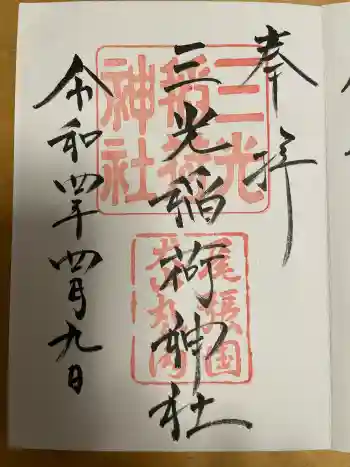 奉拝
三光稲荷神社
令和四年四月九日
三光
稲荷
神社
尾張国
犬山丸の内